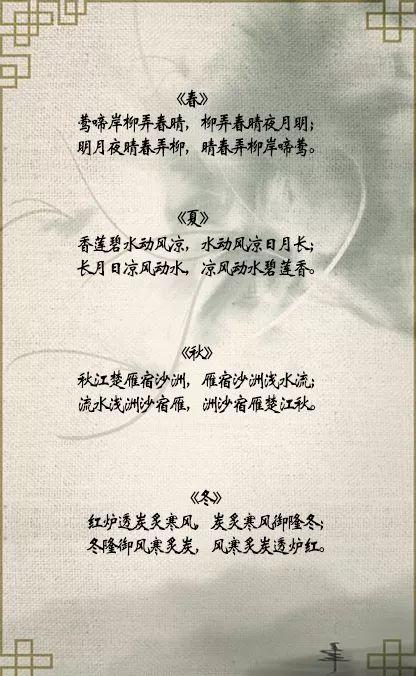 《春》
莺啼岸柳弄春晴，柳弄春晴夜月明；
明月夜晴春弄柳，晴春弄柳岸啼莺。
《夏》
香莲碧水动风凉，水动风凉日月长；
长月日凉风动水，凉风动水碧莲香。
《秋》
秋江楚雁宿沙洲，雁宿沙洲浅水流；
流水浅洲沙宿雁，洲沙宿雁楚江秋。
《冬》
红炉透炭炙寒风，炭炙寒风御隆冬；
冬隆御风寒炙炭，风寒炙炭透炉红。